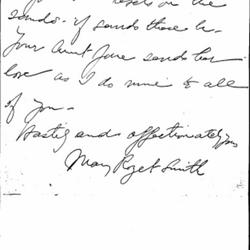 on the
sands. if sands there be.
Your Aunt Jane sends her
love as I do mine to all
of you –
Hastily and affectionately yours
Mary Roget Smith